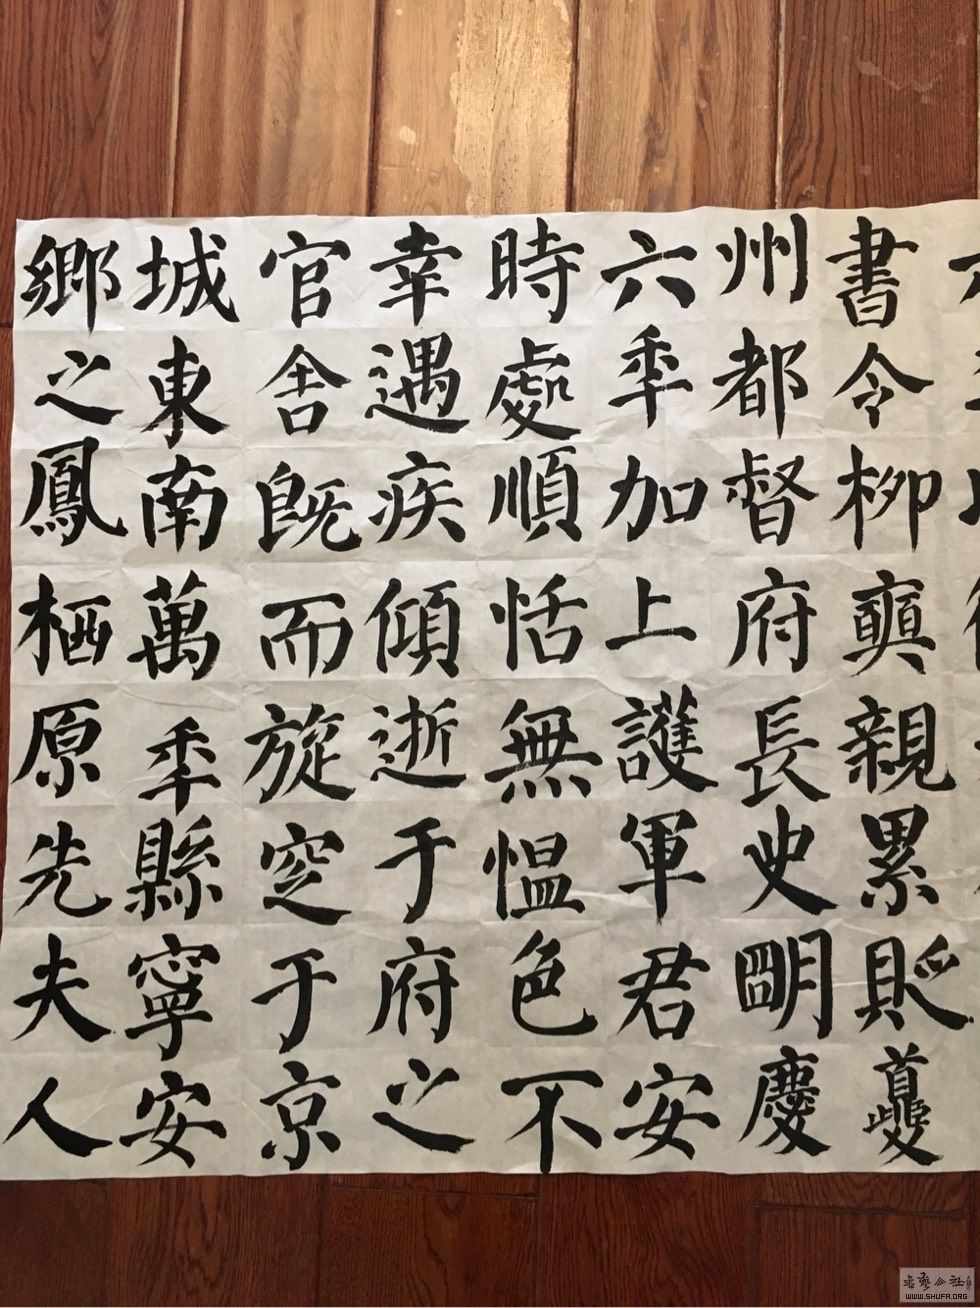 書令柳奭親累貶夔
州都督府長史朙慶
六秊加上護軍君安
時處順恬無慍色不
幸遇疾傾逝于府之
官舍既而旋窆于京
城東南萬秊縣寧安
鄉之鳳栖原先夫人
書藝公社
WWW.SHUFA.ORG